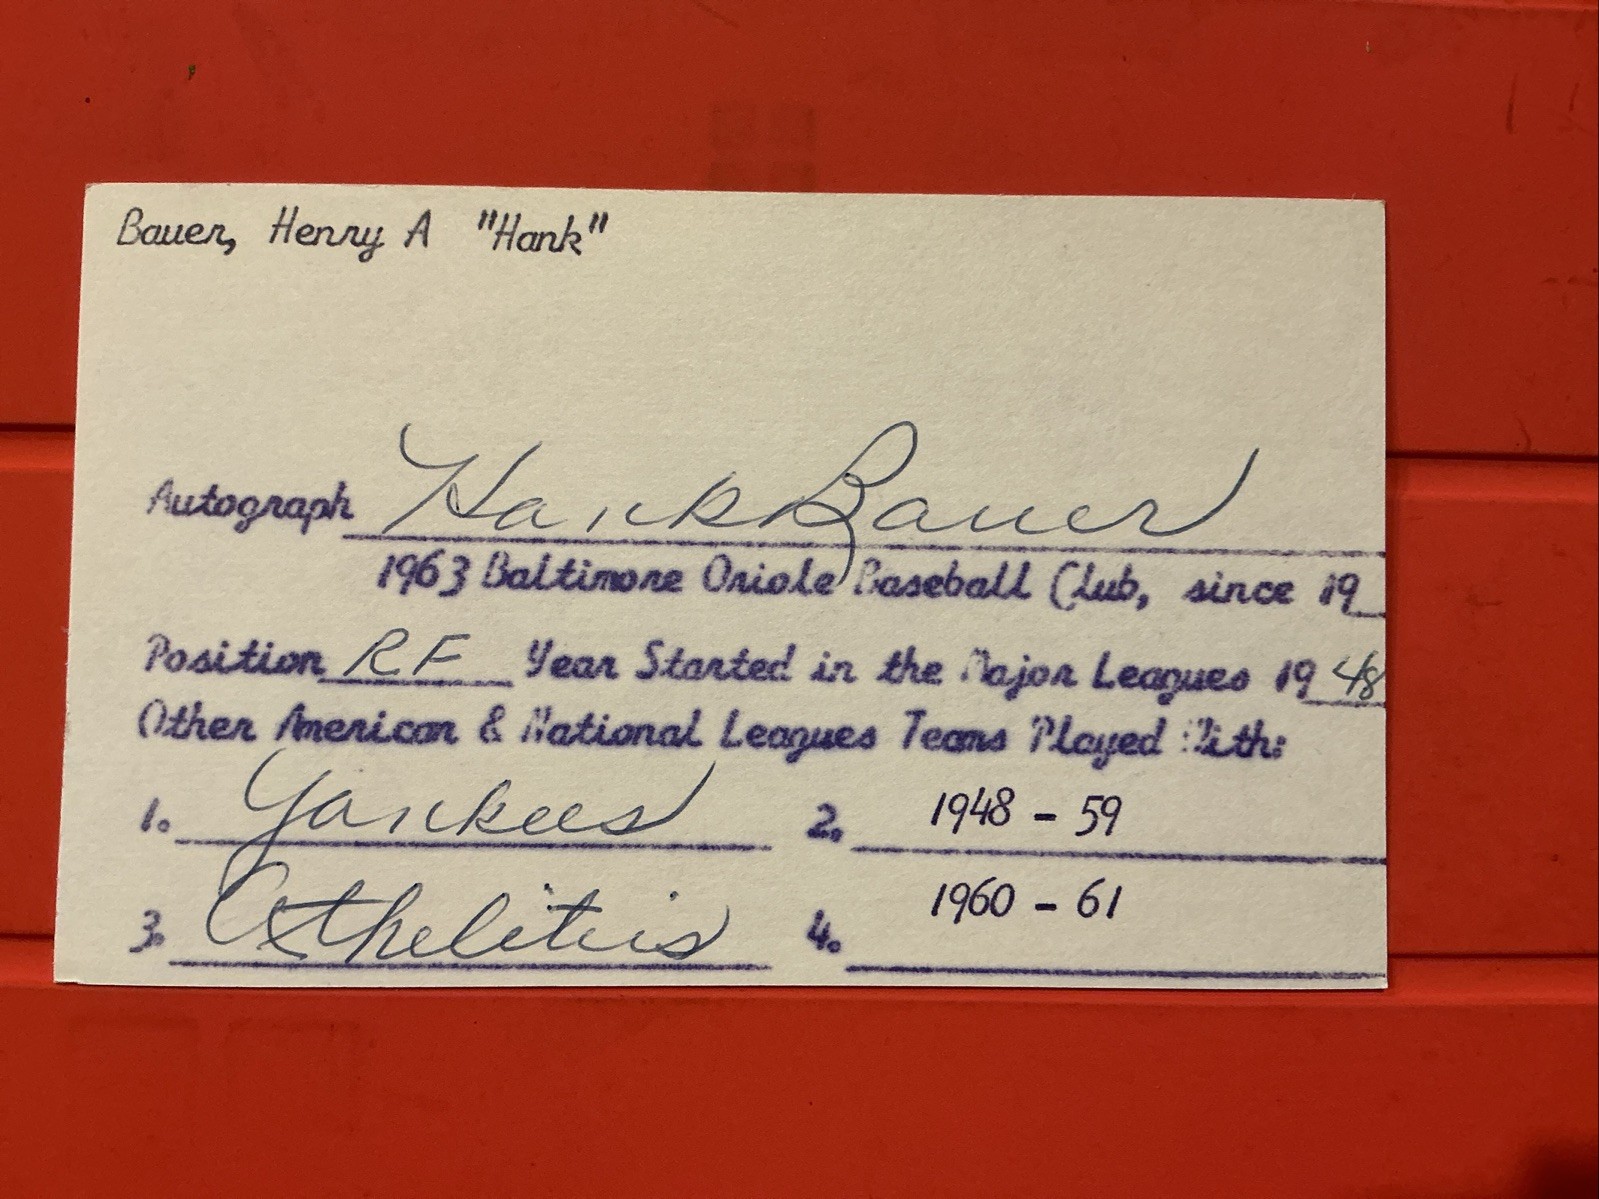 Bauer, Henry A "Hank"
Autograph Hank Bauer
1963 Baltimore Oriole Baseball Club, since 19
Position RF Year Started in the Major Leagues 1948
Other American & National Leagues Teams Played With:
1. Yankees 2. 1948 - 59
3. Athelitics 4. 1960 - 61